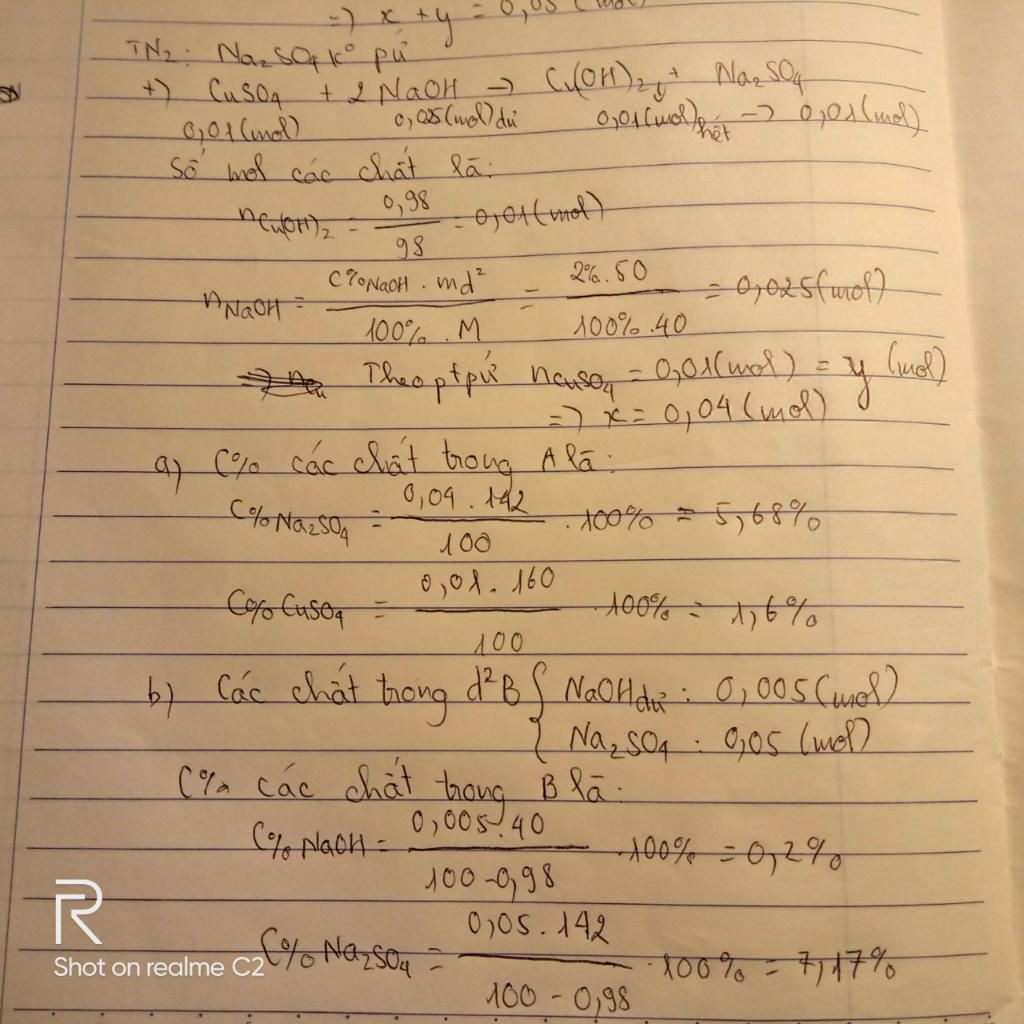 =) x + y = 0,05 (mol)
TN2: Na2SO4 k° pứ
+) CuSO4 + 2NaOH → Cu(OH)2↓ + Na2SO4
0,01(mol) 0,025(mol) dư 0,01(mol) hết → 0,01(mol)
Số mol các chất là:
nCu(OH)2 = 0,98/98 = 0,01(mol)
nNaOH = C%NaOH . md²/100% . M = 2%.50/100%.40 = 0,025(mol)
Theo ptpứ nCuSO4 = 0,01(mol) = y (mol)
=) x = 0,04 (mol)
a) C% các chất trong A là:
C%Na2SO4 = 0,04 . 142/100 . 100% = 5,68%
C%CuSO4 = 0,01. 160/100 . 100% = 1,6%
b) Các chất trong d²B { NaOH dư : 0,005(mol)
Na2SO4 : 0,05 (mol)
C% các chất trong B là:
C%NaOH = 0,005.40/100-0,98 .100% = 0,2%
C%Na2SO4 = 0,05.142/100 - 0,98 .100% = 7,17%
R
Shot on realme C2